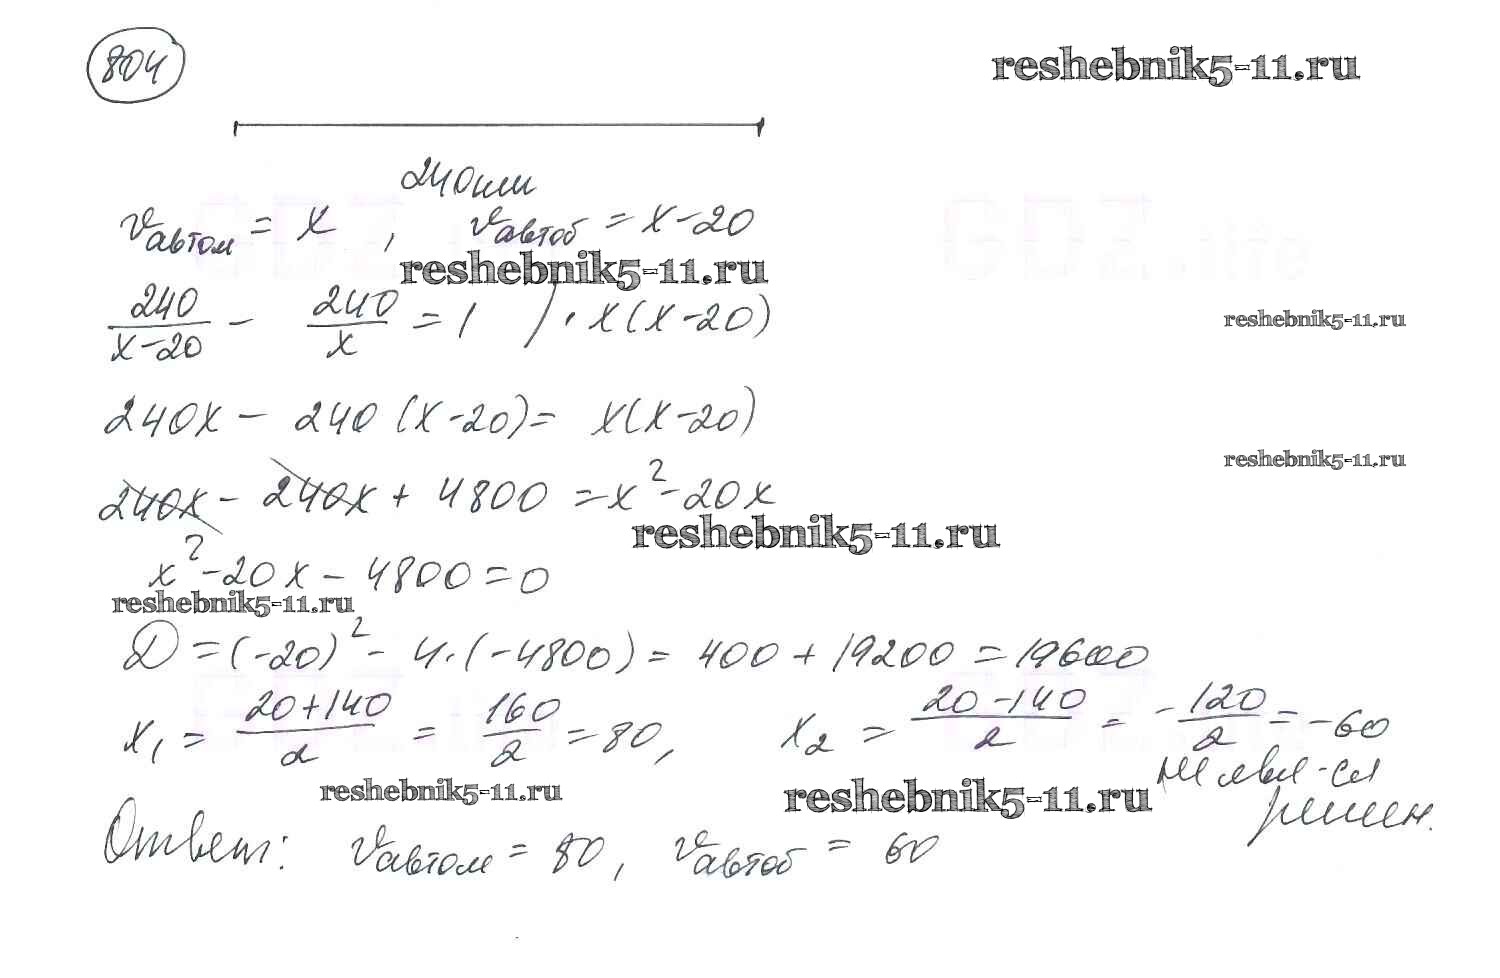 804
reshebnik5-11.ru
240 км
Vавтом = x , Vавтоб = x-20
reshebnik5-11.ru
240/(x-20) - 240/x = 1 / · x(x-20)
reshebnik5-11.ru
240x - 240(x-20) = x(x-20)
reshebnik5-11.ru
240x - 240x + 4800 = x² - 20x
reshebnik5-11.ru
x² - 20x - 4800 = 0
reshebnik5-11.ru
D = (-20)² - 4·(-4800) = 400 + 19200 = 19600
x₁ = (20+140)/2 = 160/2 = 80, x₂ = (20-140)/2 = -120/2 = -60
не явл-ся
решен.
reshebnik5-11.ru
reshebnik5-11.ru
Ответ: Vавтом = 80, Vавтоб = 60